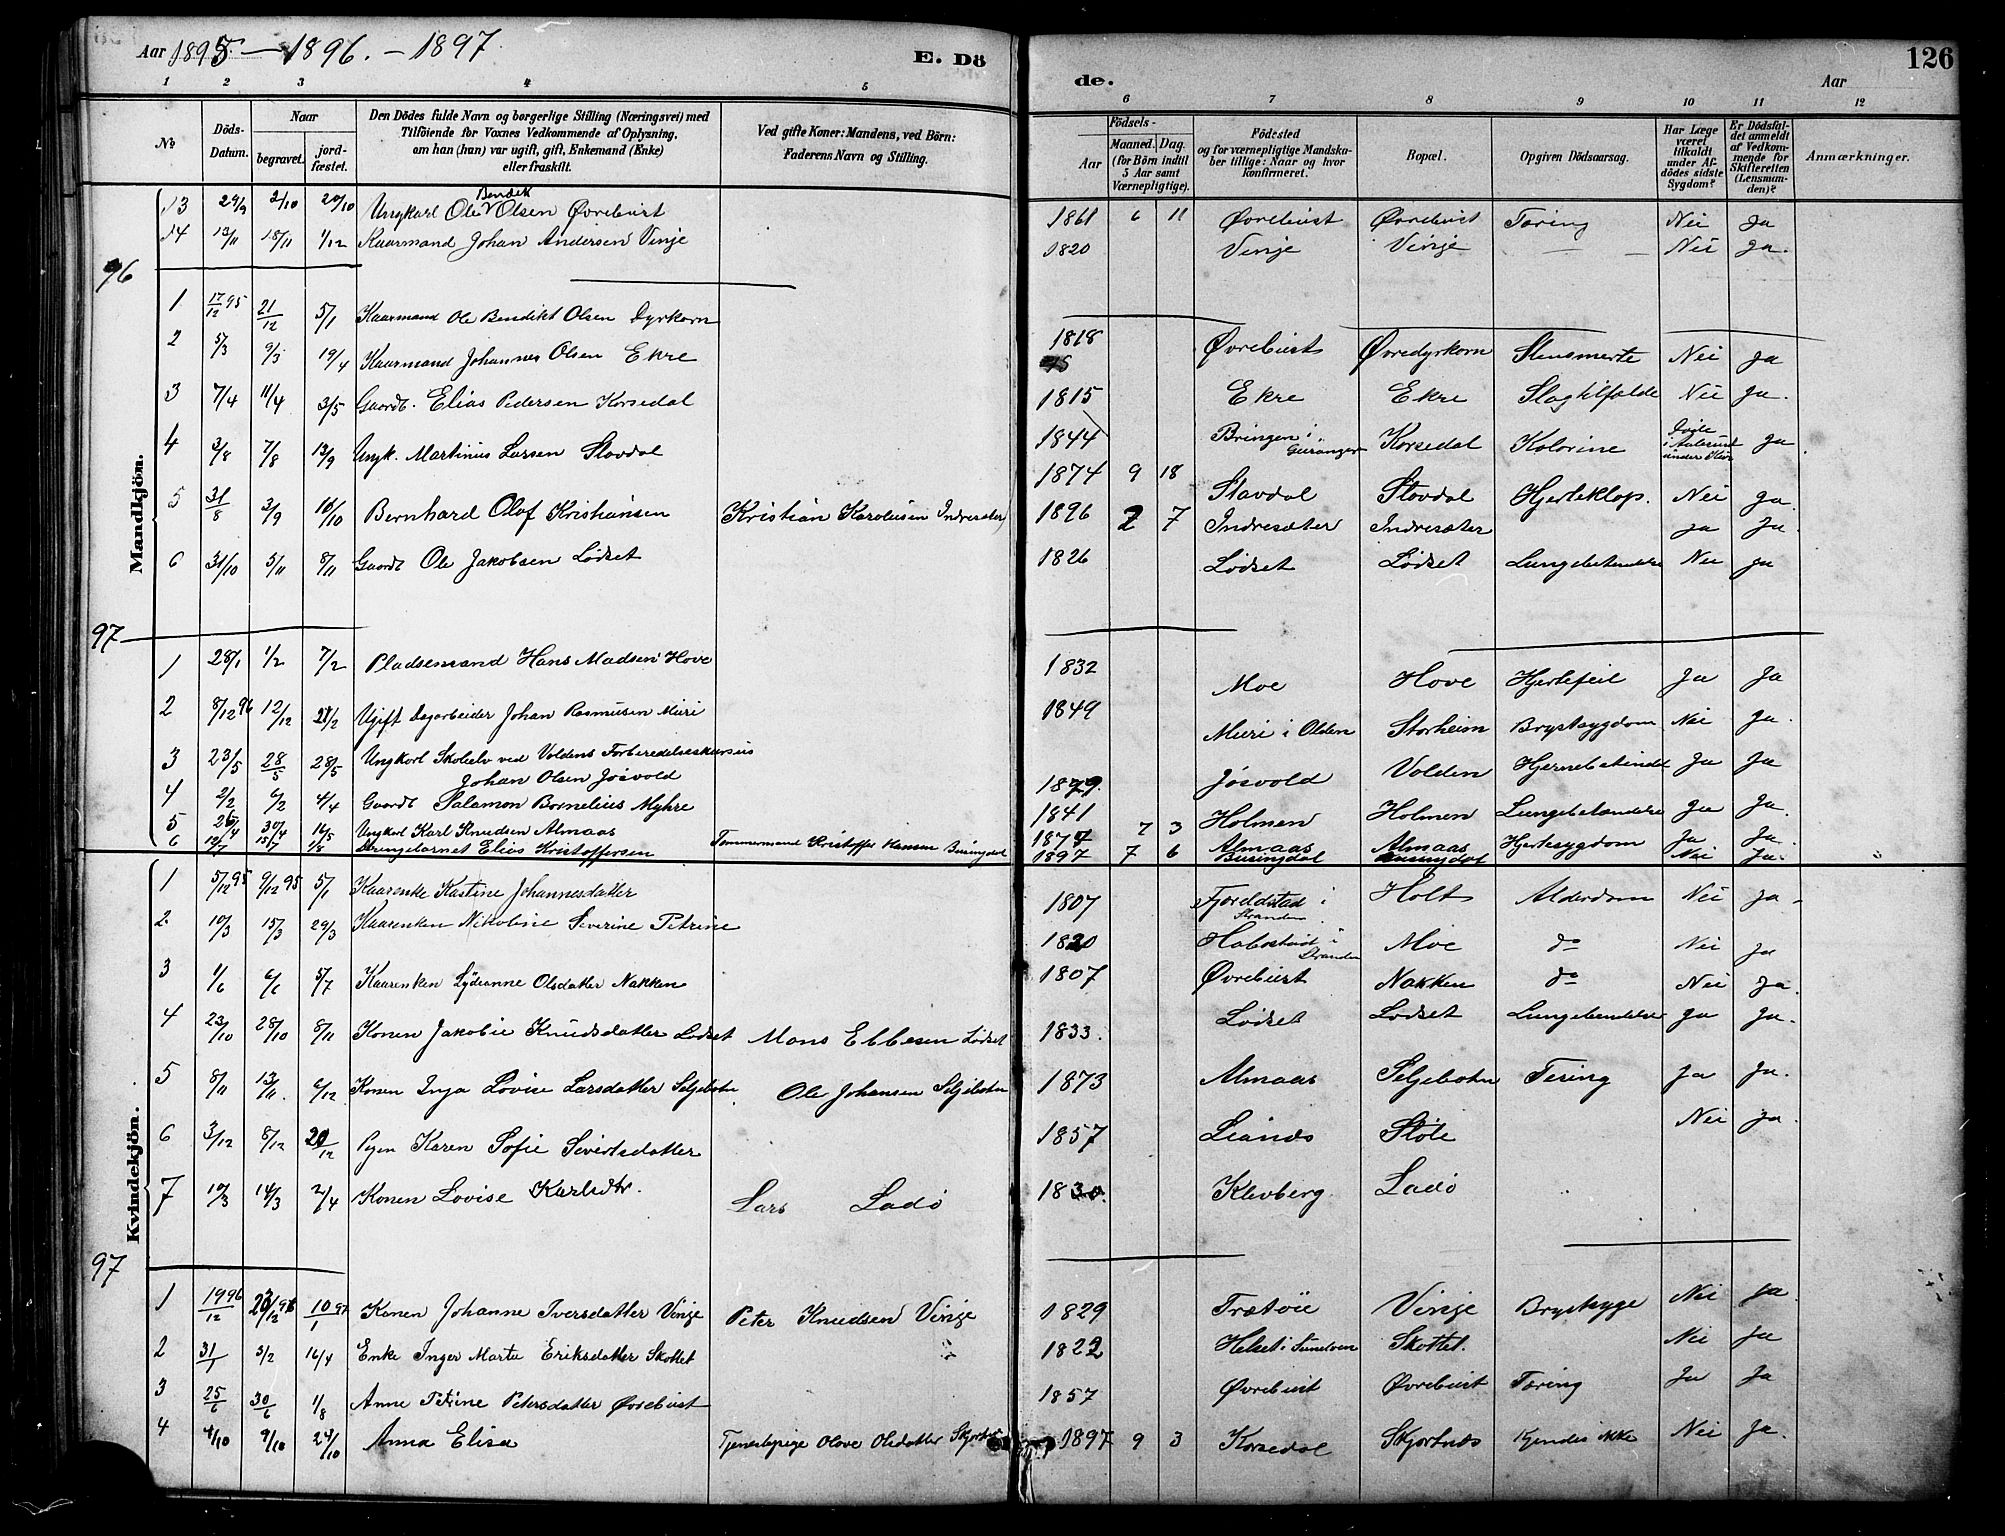 Aar 1895 — 1896. — 1897
E. Dö
de.
Aar
126
1 2 3 4 5 6 7 8 9 10 11 12
No
Döds-Datum.
Naar
begravet.
jordfæstet.
Den Dödes fulde Navn og borgerlige Stilling (Næringsvei) med
Tilföiende for Voxnes Vedkommende af Oplysning,
om han (hun) var ugift, gift, Enkemand (Enke)
eller fraskilt.
Ved gifte Koner: Mandens, ved Börn:
Faderens Navn og Stilling.
Födsels-
Aar
Maaned. Dag.
(for Börn indtil
5 Aar samt
Værnepligtige).
Födested
og for værnepligtige Mandskaber tillige: Naar og hvor
konfirmeret.
Bopæl.
Opgiven Dödsaarsag.
Har Læge
været
tilkaldt
under Afdödes sidste
Sygdom?
Er Dödsfaldet anmeldt
af Vedkommende for
Skifteretten
(Lensmanden)?
Anmærkninger.
Mandkjön.
13 29/9 2/10 20/10 Ungkarl Ole Bendik Olsen Øvrebust 1861 6 11 Øvrebust Øvrebust Tæring Nei Ja
14 13/11 18/11 1/12 Kaarmand Johan Andersen Vinje 1820 Vinje Vinje — — Nei Ja.
96
1 17/12 95 21/12 5/1 Kaarmand Ole Bendikt Olsen Dyrkorn 1818 Øvrebust Øvredyrkorn Stensmerte Nei Ja
2 5/3 9/3 19/4 Kaarmand Johannes Olsen Ekre 1815 Ekre Ekre Slagtilfælde Nei Ja.
3 7/4 11/4 3/5 Gaardb. Elias Pedersen Korsedal 1844 Bringen i Geiranger Korsedal Kolerine i Aalesund under Ja
4 3/8 7/8 13/9 Ungk. Martinus Larsen Stavdal 1874 9 18 Stavdal Stavdal Hjerteklap. Nei Ja.
5 31/8 3/9 18/10 Bernhard Olaf Kristiansen Kristian Karolusen Indresæter 1896 2 7 Indresæter Indresæter Ja Ja.
6 31/10 5/11 8/11 Gaardb Ole Jakobsen Lødset 1826 Lødset Lødset Lungebetændelse Nei Ja
97
1 28/1 1/2 7/2 Pladsemand Hans Madsen Hove 1832 Moe Hove Hjertefeil Ja Ja
2 8/12 96 12/12 21/2 Ugift Dagarbeider Johan Rasmusen Muri 1849 Muri i Olden Storheim Brystsygdom Nei Ja.
3 23/5 28/5 28/5 Ungkarl Skoleelev ved Voldens Forberedelseskursus
Johan Olsen Jøsvold 1879. Jøsvold Volden Hjernebetændt Ja Ja
4 2/2 6/2 4/4 Gaardb Salamon Bornelius Myhre 1841 Holmen Holmen Lungebetændelse Ja Ja.
5 26/4 30/4 16/5 Ungkarl Karl Knudsen Almaas 1877 7 3 Almaas Almaas Hjertesygdom Ja Ja.
6 12/7 15/7 1/8 Drengebarnet Elias Kristoffersen Tømmermand Kristoffer Hansen Busingdal 1897 7 6 Busingdal Busingdal Nei Ja.
Kvindekjön.
1 5/12 95 9/12 95 5/1 Kaarenke Kastine Johannesdatter 1807 Fjeldstad i Stranden Holt Alderdom Nei Ja.
2. 10/3 15/3 29/3 Kaarenken Nikoline Severine Petrine 1820 Habostad i Stranden Moe do Nei Ja
3 1/6 6/6 5/7 Kaarenken Lydianne Olsdatter Nakken 1807 Øvrebust Nakken do Nei Ja.
4 23/10 28/10 8/11 Konen Jakobie Knudsdatter Lødset Mons Ebbesen Lødset 1833. Lødset Lødset Lungebendelse Ja Ja.
5 8/11 13/11. 6/12 Konen Inga Lovise Larsdatter Seljebotn Ole Johansen Seljebotn 1873 Almaas Seljebotn Tering Ja Ja.
6 3/12 8/12 20/12 Pigen Karen Sofie Sivertsdatter 1857 Lianes Støle Nei Ja.
7 10/3 14/3 2/4 Konen Lovise Karlsdtr. Lars Ladø 1830. Klevberg Ladø
97
1 19/12 96 23/12 96 10/1 97 Konen Johanne Iversdatter Vinje Peter Knudsen Vinje 1829 Trætøie Vinje Brystsyge Nei Ja.
2 31/1 5/2 16/4 Enke Inger Marta Eriksdatter Skottet 1822 Helset i Sunelven Skottet. Nei Ja
3 25/6 30/6 1/8 Anne Petrine Petersdatter Øvrebust 1857 Øvrebust Øvrebust Tæring Ja Ja
4 4/10 9/10 24/10 Anna Elisa Tjenestepige Olave Olsdatter 1897 9 3 Korsedal Skjortnes Kjendes ikke Nei Ja.